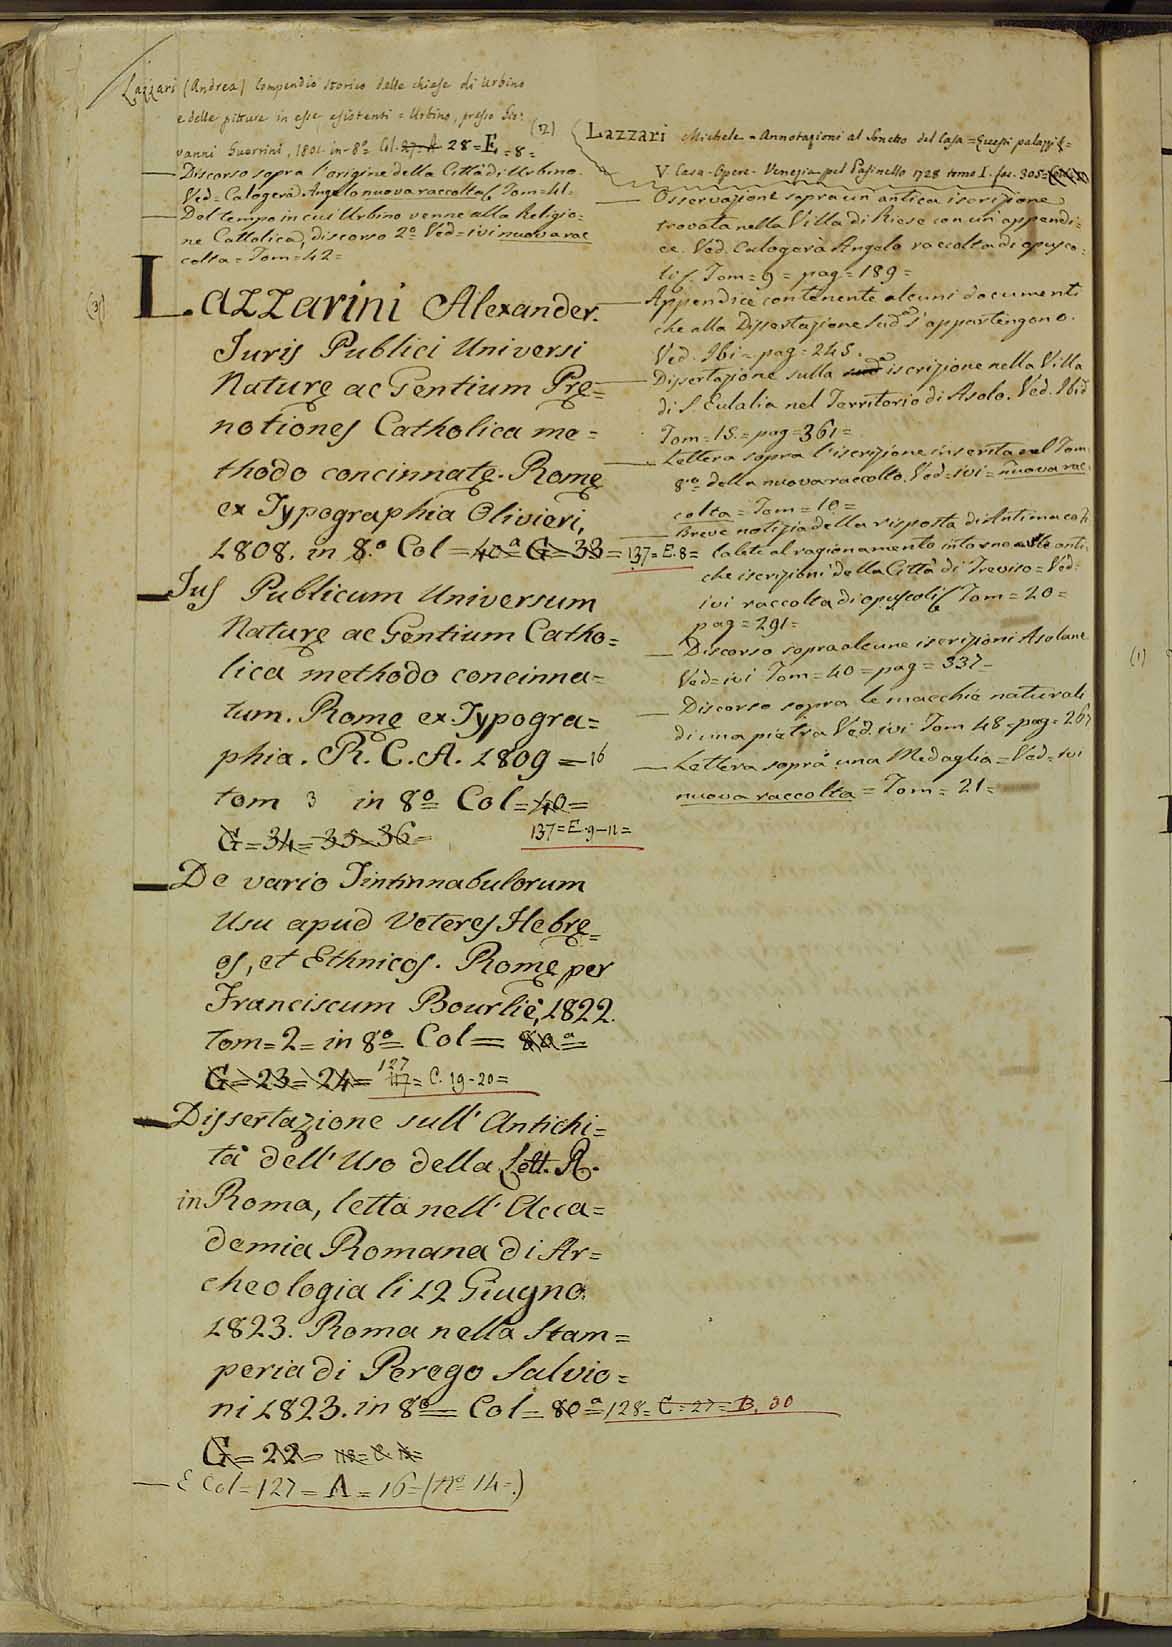 Lazzari (Andrea) Compendio storico delle chiese di Urbino
e delle pitture in esse esistenti = Urbino, presso Gio:
vanni Guerrini, 1801. in-8º Col. 27. A 28=E=8=
— Discorso sopra l'origine della Città di Urbino.
Ved= Calogerà Angelo nuova raccolta &. Tom=41=
— Del tempo in cui Urbino venne alla Religio=
ne Cattolica, discorso 2º Ved= ivi nuova rac
colta = Tom=42=
(3)
Lazzarini Alexander.
Juris Publici Universi
Naturę ac Gentium Prę=
notiones Catholica me=
thodo concinnatę. Romę
ex Typographia Olivieri,
1808. in 8.º Col=40ª G=33=137=E.8=
— Jus Publicum Universum
Naturę ac Gentium Catho=
lica methodo concinna=
tum. Romę ex Typogra=
phia. R. C. A. 1809=16
tom 3 in 8º Col=40=
G=34=35=36=
137=E.9-11=
— De vario Tintinnabulorum
Usu apud Veteres Hebrę=
os, et Ethnicos. Romę per
Franciscum Bourliè, 1822.
tom=2= in 8º Col= 80ª=
G=23=24= 127 117= C. 19-20=
— Dissertazione sull' Antichi=
tà dell' Uso della Lett. R.
in Roma, letta nell' Acca=
demia Romana di Ar=
cheologia li 12 Giugno.
1823. Roma nella Stam=
peria di Perego Salvio=
ni 1823. in 8º= Col= 80ª=128= C=27= B. 30
G=22=
— E Col=127=A=16=(Nº 14=)
(2)
Lazzari Michele = Annotazioni al Sonetto del Casa = Questi palazzi &=
V. Casa - Opere - Venezia pel Pasinello 1728 tomo I. fac. 305=
— Osservazione sopra un' antica iscrizione
trovata nella Villa di Riese con un' appendi=
ce. Ved. Calogerà Angelo raccolta di opusco=
li &. Tom=9= pag=189=
— Appendice contenente alcuni documenti
che alla Dissertazione sudª s' appartengono.
Ved. Ibi= pag=245.
— Dissertazione sulla sudª iscrizione nella Villa
di S. Eulalia nel Territorio di Asolo. Ved. Ibid
Tom=15.= pag=361=
— Lettera sopra l'iscrizione inserita nel Tom
8º della nuova raccolta. Ved= ivi= nuova rac
colta= Tom=10=
— Breve notizia della risposta di Antimaco fi
lalete al ragionamento intorno alle anti
che iscrizioni della Città di Treviso= Ved=
ivi raccolta di opuscoli & Tom=20=
pag=291=
— Discorso sopra alcune iscrizioni Asolane
Ved= ivi Tom=40= pag=337=
— Discorso sopra le macchie naturali
di una pietra Ved. ivi Tom 48=pag=267
— Lettera sopra una Medaglia= Ved= ivi
nuova raccolta= Tom=21=
(1)